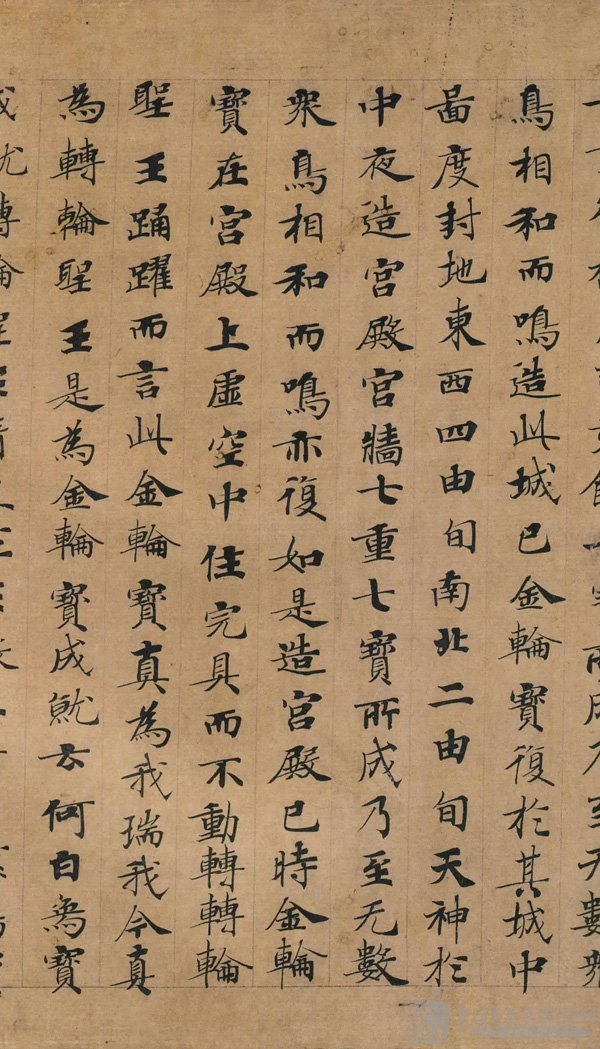 所成乃至无數眾
鳥相和而鳴造此城已金輪寶復於其城中
啚度封地東西四由旬南北二由旬天神於
中夜造宮殿宮牆七重七寶所成乃至无數
眾鳥相和而鳴亦復如是造宮殿已時金輪
寶在宮殿上虛空中住完具而不動轉轉輪
聖王踊躍而言此金輪寶真為我瑞我今真
為轉輪聖王是為金輪寶成就云何白象寶
成就轉輪聖王清旦